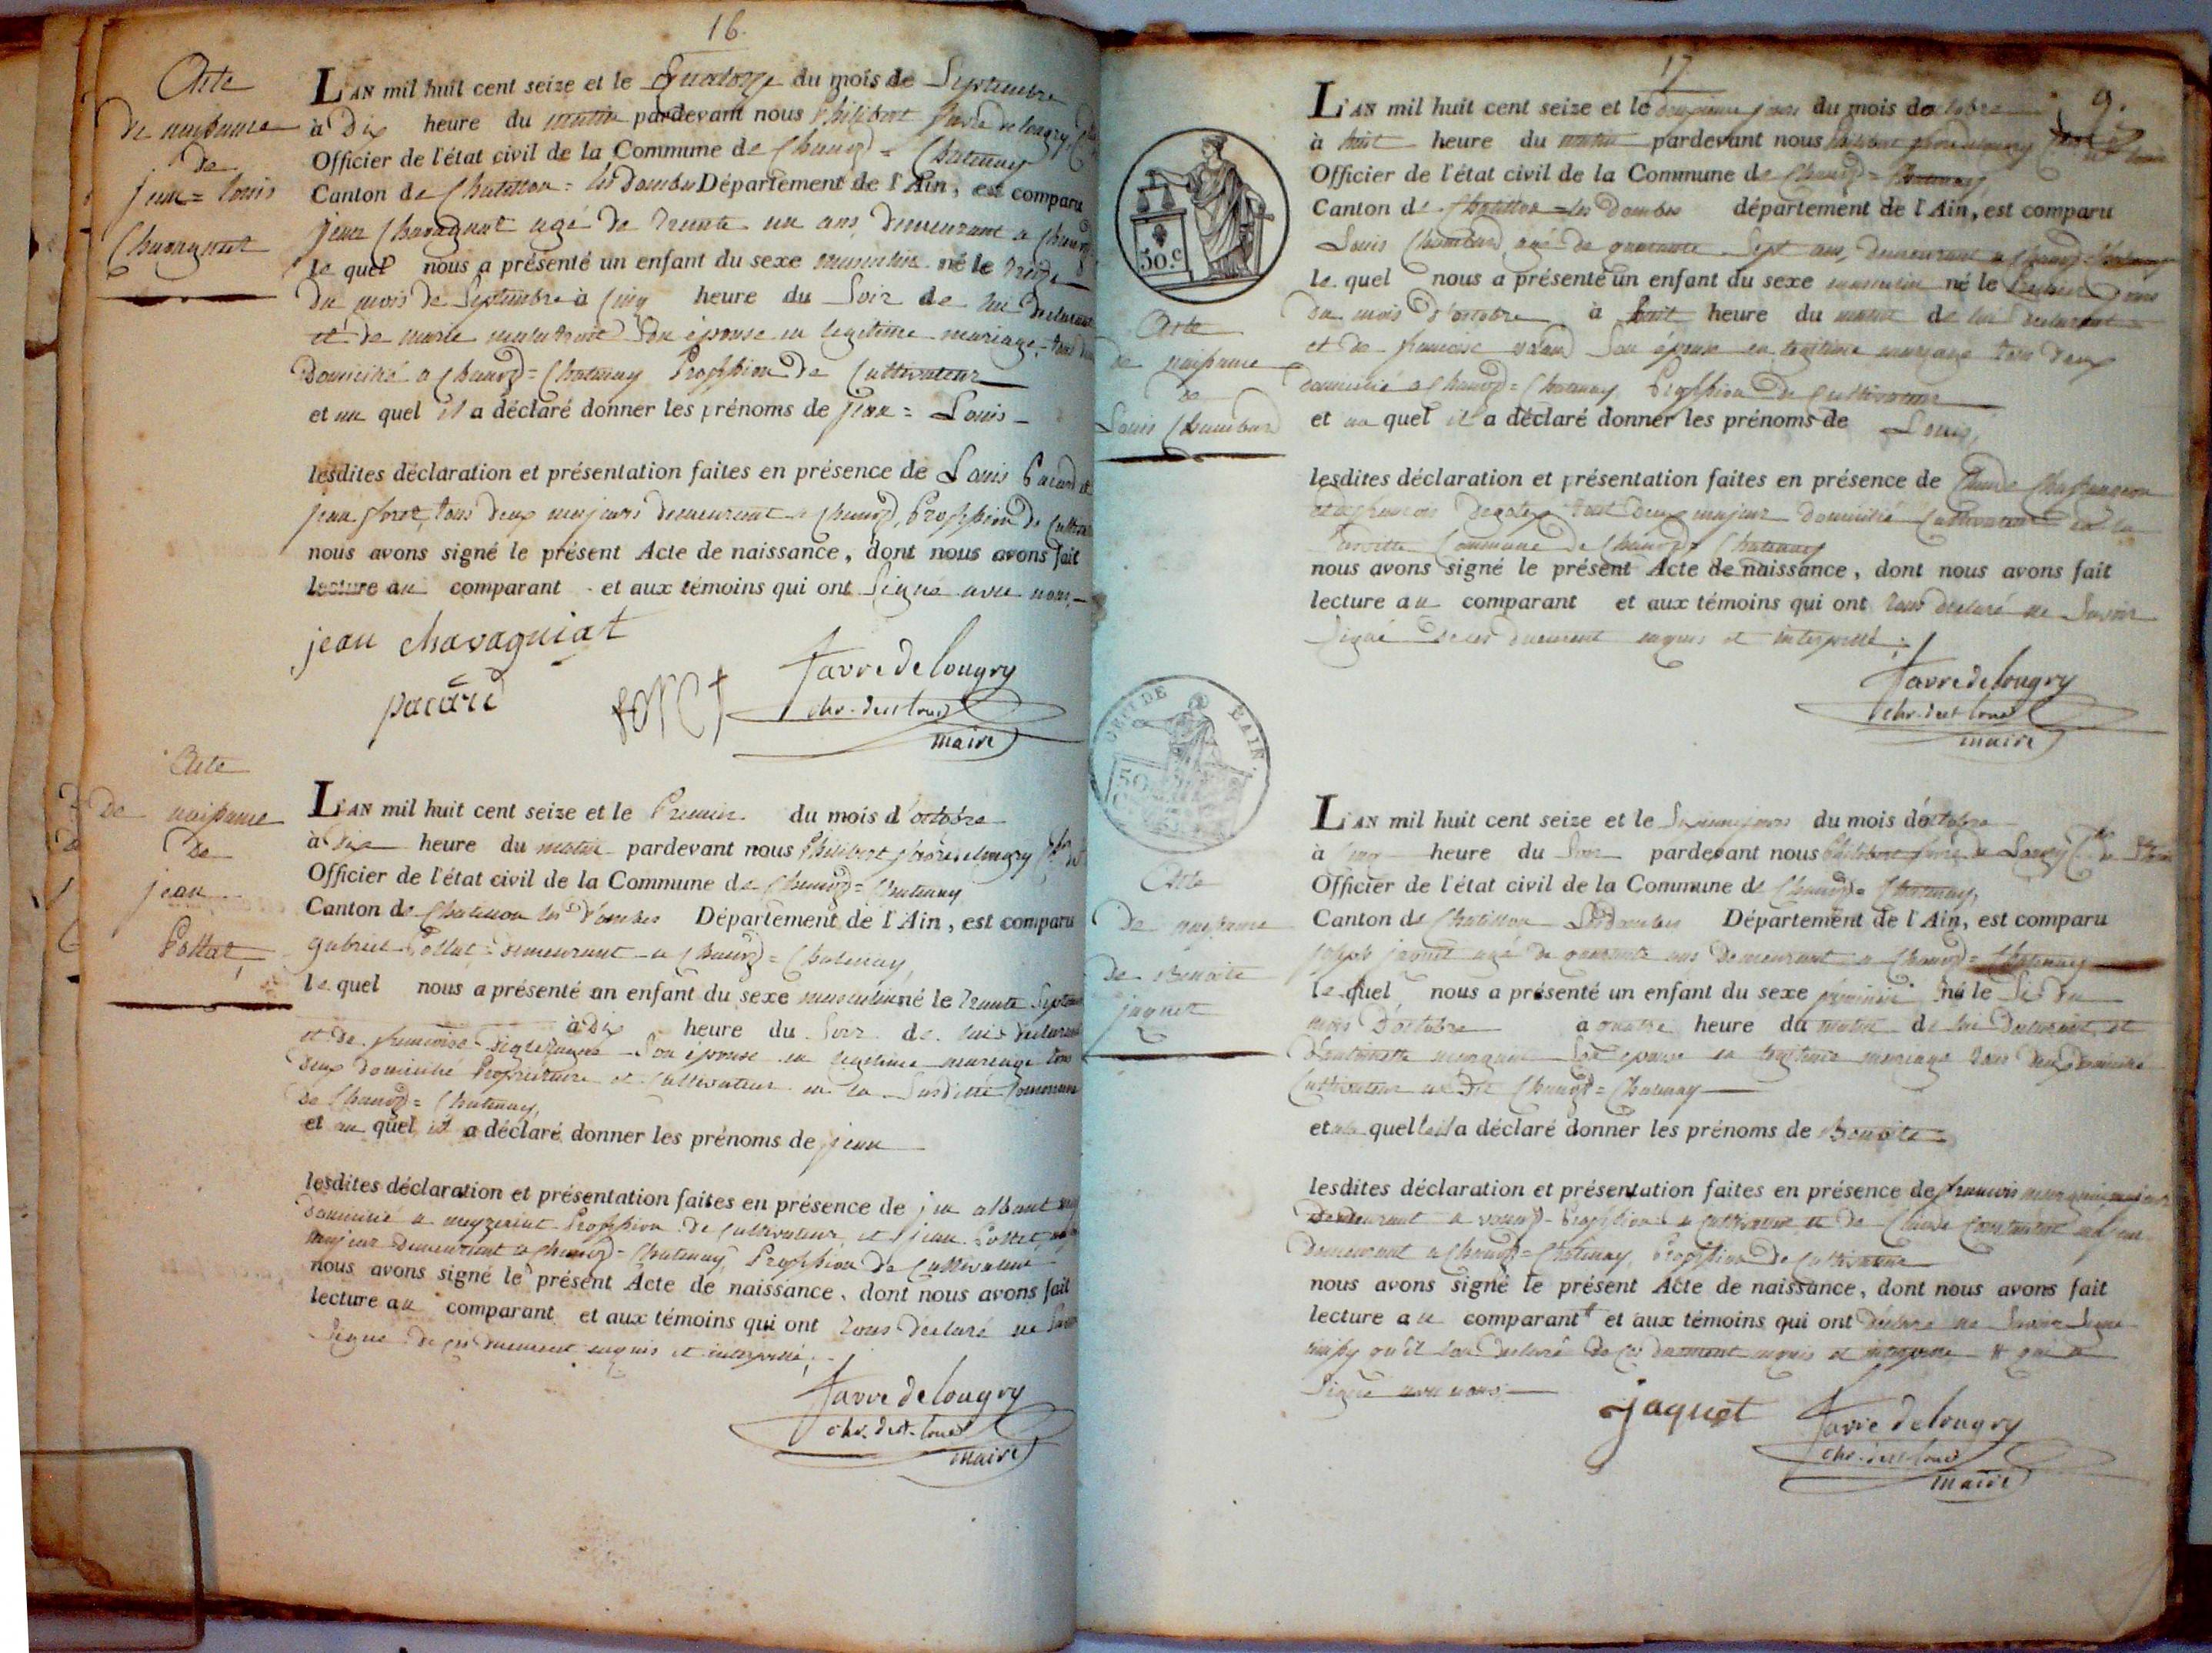 16.
Acte
de naissance
de
jean = Louis
Chavagnat
L'AN mil huit cent seize et le Quatorze du mois de Septembre
à Dix heure du matin pardevant nous Philibert favre de longry
Officier de l'état civil de la Commune de Chanoz = Chatenay
Canton de Chatillon = les Dombes Département de l'Ain, est comparu
jean Chavagnat agé de Trente un ans, demeurant a Chanoz
le quel nous a présenté un enfant du sexe masculin né le treize
du mois de Septembre à Cinq heure du Soir de lui declarant
et de marie Son épouse en legitime mariage, tous deux
Domicilié a Chanoz = Chatenay Profession de Cultivateur
et au quel il a déclaré donner les prénoms de jean = Louis
lesdites déclaration et présentation faites en présence de Louis Pacard et
jean foret, tous deux majeurs demeurant a Chanoz, Profession de Cultivateur
nous avons signé le présent Acte de naissance, dont nous avons fait
lecture au comparant et aux témoins qui ont Signé avec nous
jean chavagniat
pacard
foret
favre de longry
maire
Acte
de naissance
de
jean
Pollat
L'AN mil huit cent seize et le Premier du mois d'octobre
à dix heure du matin pardevant nous Philibert favre de longry
Officier de l'état civil de la Commune de Chanoz = Chatenay
Canton de Chatillon les Dombes Département de l'Ain, est comparu
gabriel Pollat = demeurant a Chanoz = Chatenay,
le quel nous a présenté un enfant du sexe masculin né le Trente Septembre
à Dix heure du Soir de lui declarant
et de francoise Son épouse en legitime mariage tous
deux domicilié Propriétaire et Cultivateur en la Susditte Commune
de Chanoz = Chatenay,
et au quel il a déclaré donner les prénoms de jean
lesdites déclaration et présentation faites en présence de
domicilié a Profession de Cultivateur et jean Pollet
majeur demeurant a Chanoz = Chatenay, Profession de Cultivateur
nous avons signé le présent Acte de naissance, dont nous avons fait
lecture au comparant et aux témoins qui ont tous déclaré ne Savoir
Signé de ces duement enquis et interpellé.
favre de longry
maire
17
9.
50.c
Acte
de naissance
de
Louis Chambard
L'AN mil huit cent seize et le jour du mois d'octobre
à huit heure du matin pardevant nous Philibert favre de longry
Officier de l'état civil de la Commune de Chanoz = Chatenay
Canton de Chatillon = les Dombes département de l'Ain, est comparu
Louis Chambard agé de quarante Sept ans, demeurant a Chanoz Chatenay
le quel nous a présenté un enfant du sexe masculin né le
du mois d'octobre à huit heure du matin de lui declarant
et de francoise Son épouse en legitime mariage tous deux
domicilié a Chanoz = Chatenay, Profession de Cultivateur
et au quel il a déclaré donner les prénoms de Louis,
lesdites déclaration et présentation faites en présence de Claude
tous deux majeur domicilié Cultivateur en la
Susditte Commune de Chanoz = Chatenay
nous avons signé le présent Acte de naissance, dont nous avons fait
lecture au comparant et aux témoins qui ont tous déclaré ne Savoir
Signé de ces duement enquis et interpellé.
favre de longry
maire
50
Acte
de naissance
de Benoite
jaquet
L'AN mil huit cent seize et le du mois d'octobre
à Cinq heure du Soir pardevant nous Philibert favre de Longry
Officier de l'état civil de la Commune de Chanoz = Chatenay,
Canton de Chatillon Les Dombes Département de l'Ain, est comparu
joseph jaquet agé de quarante ans demeurant a Chanoz = Chatenay
le quel nous a présenté un enfant du sexe feminin né le Six du
mois d'octobre à quatre heure du matin de lui declarant et
d'antoinette Son epouse en legitime mariage tous deux domicilié
Cultivateur au Dit Chanoz = Chatenay
et a la quelle il a déclaré donner les prénoms de Benoite
lesdites déclaration et présentation faites en présence de francois
demeurant a Profession de Cultivateur et de Claude majeur
demeurant a Chanoz = Chatenay, Profession de Cultivateur
nous avons signé le présent Acte de naissance, dont nous avons fait
lecture au comparant et aux témoins qui ont déclaré ne Savoir Signé
qu'il déclaré de ces duement enquis et qui a
Signé avec nous
jaquet
favre de longry
maire